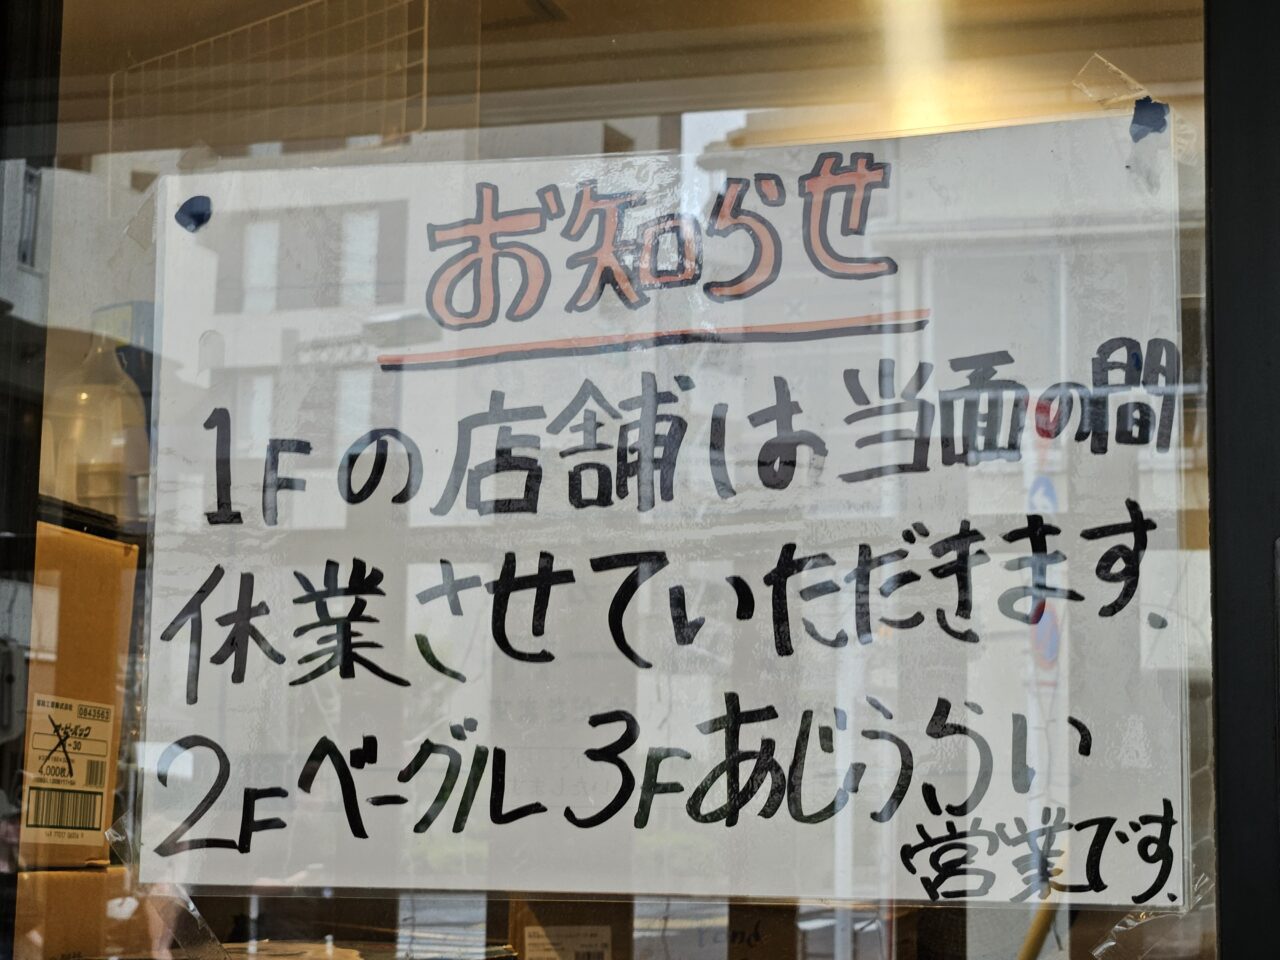 お知らせ
1Fの店舗は当面の間
休業させていただきます.
2Fベーグル 3Fあじうらい
営業です.
0843563
4,000枚